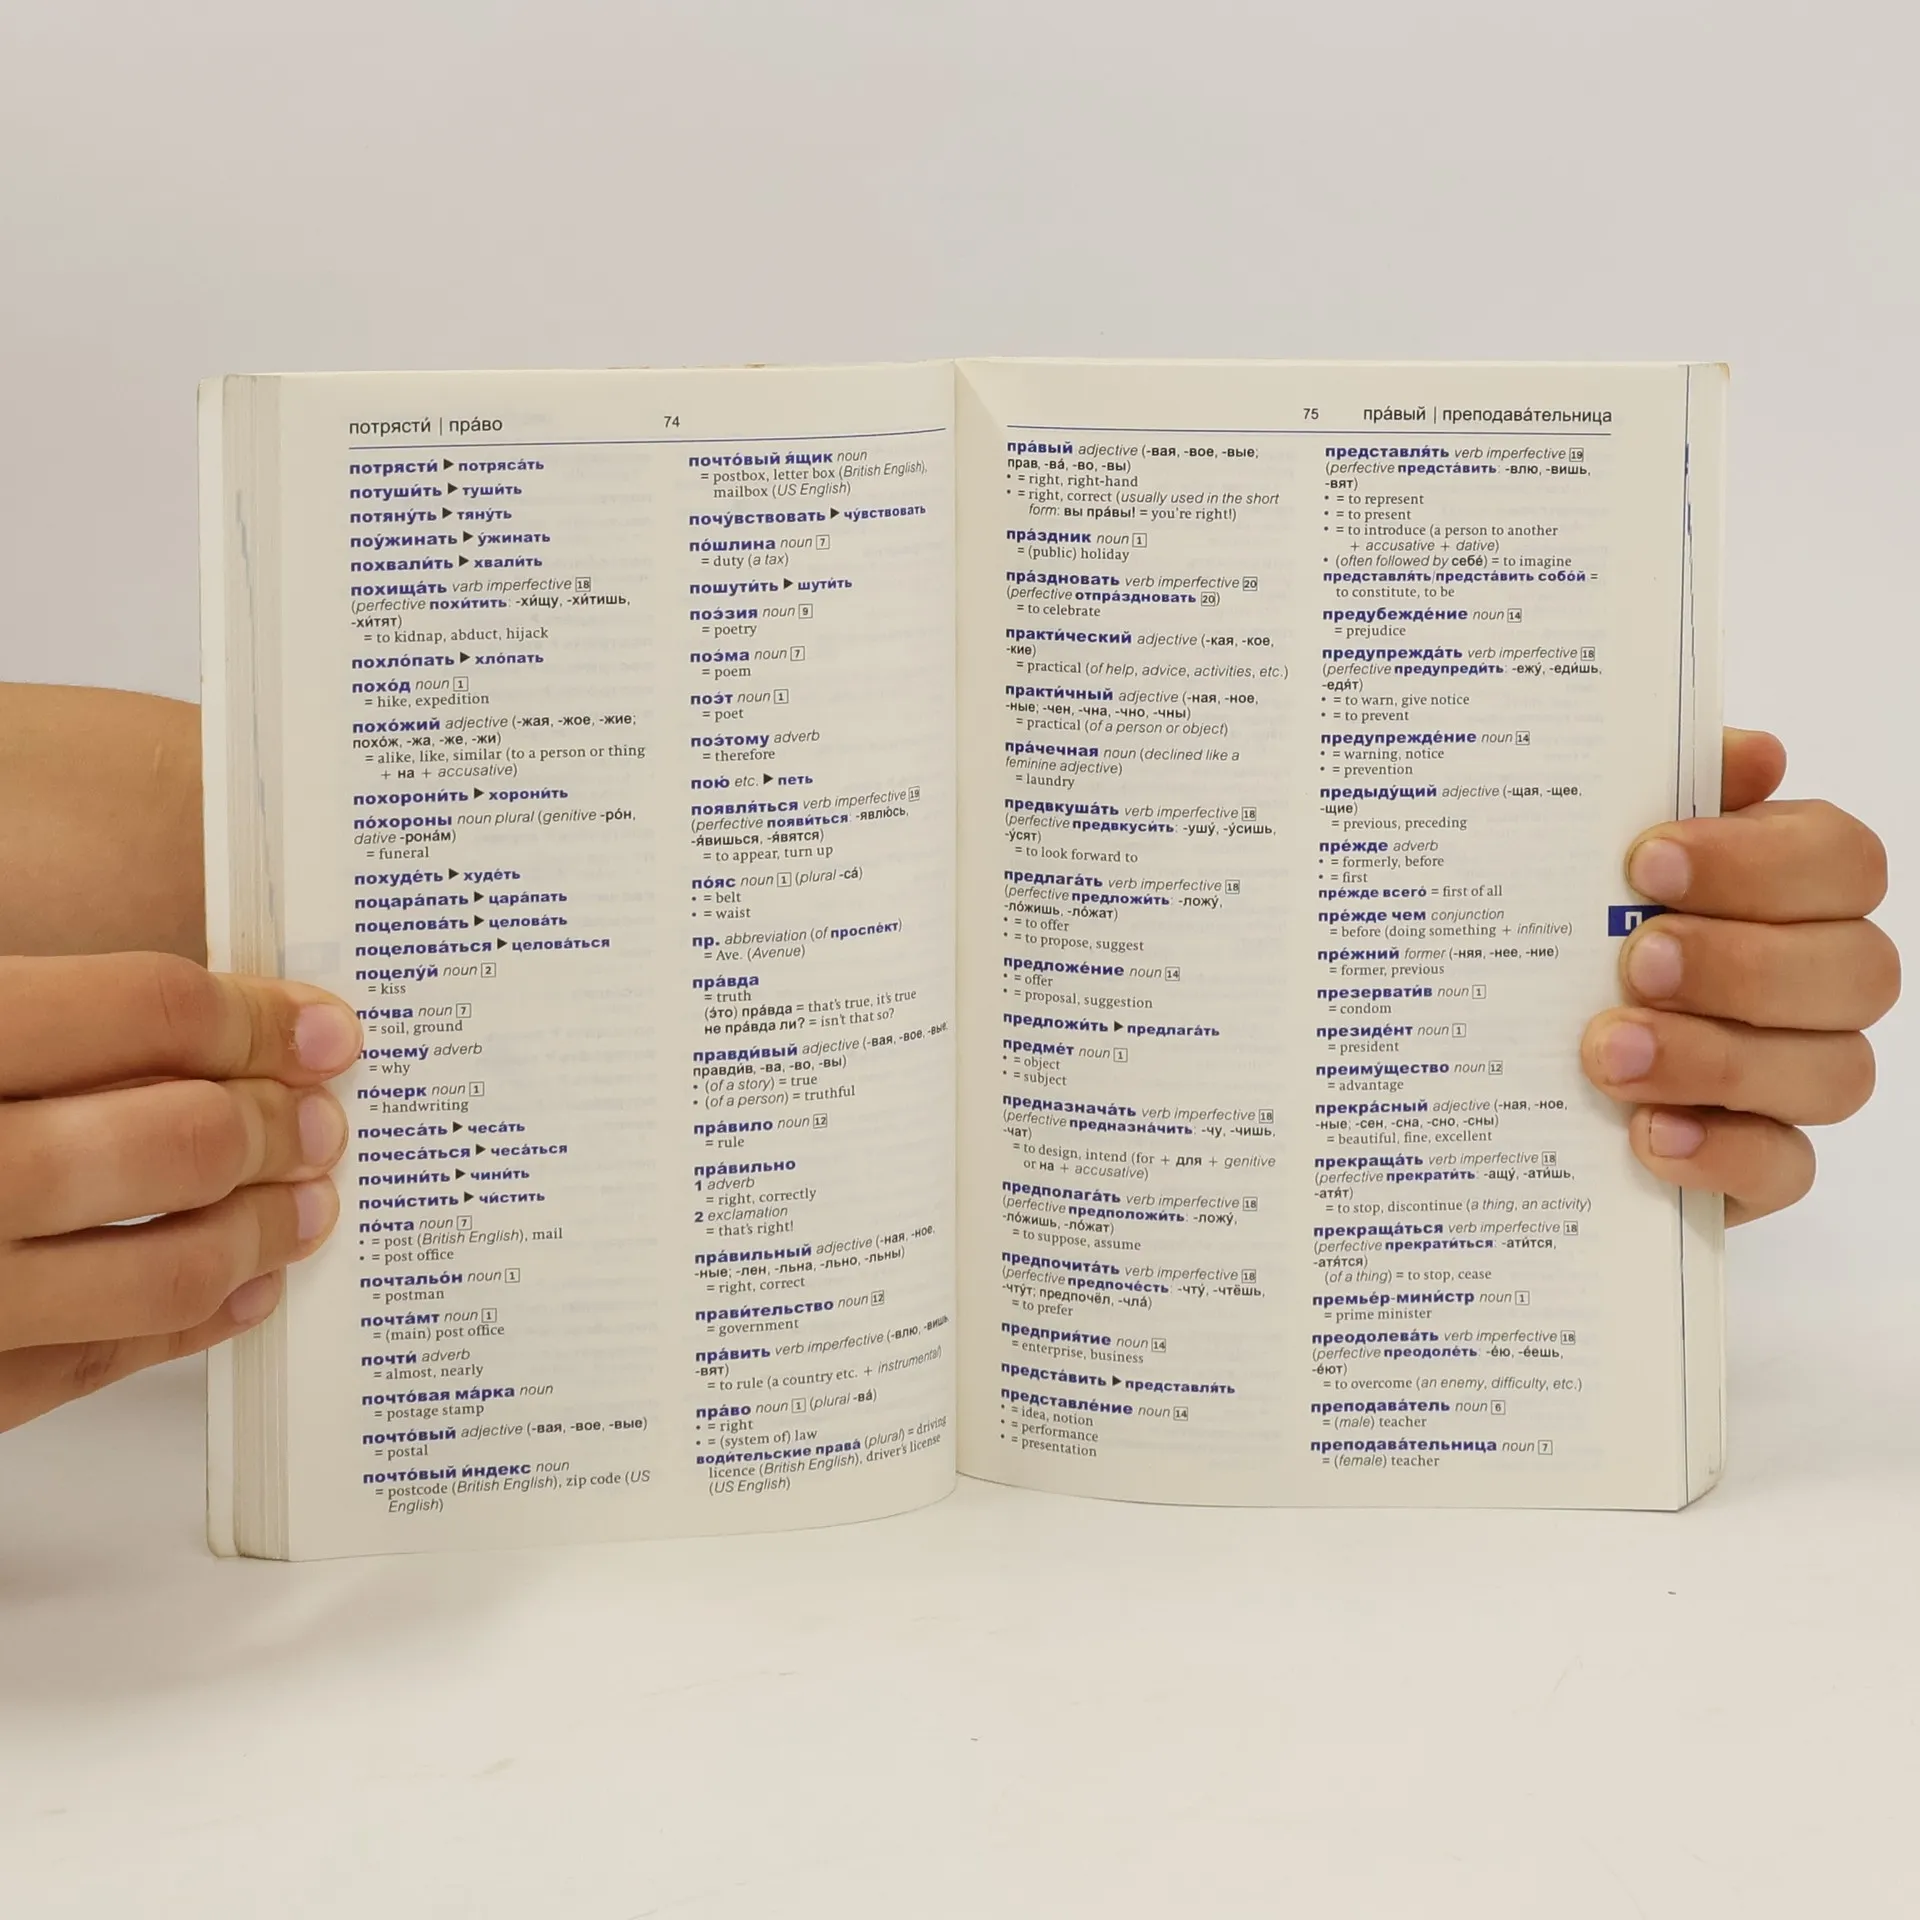 потрясти́ | пра́во
74
потрясти́ ▶ потряса́ть
потуши́ть ▶ туши́ть
потяну́ть ▶ тяну́ть
поу́жинать ▶ у́жинать
похвали́ть ▶ хвали́ть
похища́ть varb imperfective 18
(perfective похи́тить: -хи́щу, -хи́тишь,
-хи́тят)
= to kidnap, abduct, hijack
похло́пать ▶ хло́пать
похо́д noun 1
= hike, expedition
похо́жий adjective (-жая, -жое, -жие;
похо́ж, -жа, -же, -жи)
= alike, like, similar (to a person or thing
+ на + accusative)
похорони́ть ▶ хорони́ть
по́хороны noun plural (genitive -ро́н,
dative -рона́м)
= funeral
похуде́ть ▶ худе́ть
поцара́пать ▶ цара́пать
поцелова́ть ▶ целова́ть
поцелова́ться ▶ целова́ться
поцелу́й noun 2
= kiss
по́чва noun 7
= soil, ground
почему́ adverb
= why
по́черк noun 1
= handwriting
почеса́ть ▶ чеса́ть
почеса́ться ▶ чеса́ться
почини́ть ▶ чини́ть
почи́стить ▶ чи́стить
по́чта noun 7
• = post (British English), mail
• = post office
почтальо́н noun 1
= postman
почта́мт noun 1
= (main) post office
почти́ adverb
= almost, nearly
почто́вая ма́рка noun
= postage stamp
почто́вый adjective (-вая, -вое, -вые)
= postal
почто́вый и́ндекс noun
= postcode (British English), zip code (US
English)
почто́вый я́щик noun
= postbox, letter box (British English),
mailbox (US English)
почу́вствовать ▶ чу́вствовать
по́шлина noun 7
= duty (a tax)
пошути́ть ▶ шути́ть
поэ́зия noun 9
= poetry
поэ́ма noun 7
= poem
поэ́т noun 1
= poet
поэ́тому adverb
= therefore
пою́ etc. ▶ петь
появля́ться verb imperfective 19
(perfective появи́ться: -явлю́сь,
-я́вишься, -я́вятся)
= to appear, turn up
по́яс noun 1 (plural -са́)
• = belt
• = waist
пр. abbreviation (of проспе́кт)
= Ave. (Avenue)
пра́вда
= truth
(э́то) пра́вда = that's true, it's true
не пра́вда ли? = isn't that so?
правди́вый adjective (-вая, -вое, -вые,
правди́в, -ва, -во, -вы)
• (of a story) = true
• (of a person) = truthful
пра́вило noun 12
= rule
пра́вильно
1 adverb
= right, correctly
2 exclamation
= that's right!
пра́вильный adjective (-ная, -ное,
-ные; -лен, -льна, -льно, -льны)
= right, correct
прави́тельство noun 12
= government
пра́вить verb imperfective (-влю, -вишь,
-вят)
= to rule (a country etc. + instrumental)
пра́во noun 1 (plural -ва́)
• = right
• = (system of) law
води́тельские права́ (plural) = driving
licence (British English), driver's license
(US English)
75
пра́вый | преподава́тельница
пра́вый adjective (-вая, -вое, -вые;
прав, -ва́, -во, -вы)
• = right, right-hand
• = right, correct (usually used in the short
form: вы пра́вы! = you're right!)
пра́здник noun 1
= (public) holiday
пра́здновать verb imperfective 20
(perfective отпра́здновать 20)
= to celebrate
практи́ческий adjective (-кая, -кое,
-кие)
= practical (of help, advice, activities, etc.)
практи́чный adjective (-ная, -ное,
-ные; -чен, -чна, -чно, -чны)
= practical (of a person or object)
пра́чечная noun (declined like a
feminine adjective)
= laundry
предвкуша́ть verb imperfective 18
(perfective предвкуси́ть: -ушу́, -у́сишь,
-у́сят)
= to look forward to
предлага́ть verb imperfective 18
(perfective предложи́ть: -ложу́,
-ло́жишь, -ло́жат)
• = to offer
• = to propose, suggest
предложе́ние noun 14
• = offer
• = proposal, suggestion
предложи́ть ▶ предлага́ть
предме́т noun 1
• = object
• = subject
предназнача́ть verb imperfective 18
(perfective предназна́чить: -чу, -чишь,
-чат)
= to design, intend (for + для + genitive
or на + accusative)
предполага́ть verb imperfective 18
(perfective предположи́ть: -ложу́,
-ло́жишь, -ло́жат)
= to suppose, assume
предпочита́ть verb imperfective 18
(perfective предпоче́сть: -чту́, -чтёшь,
-чту́т; предпочёл, -чла́)
= to prefer
предприя́тие noun 14
= enterprise, business
предста́вить ▶ представля́ть
представле́ние noun 14
• = idea, notion
• = performance
• = presentation
представля́ть verb imperfective 19
(perfective предста́вить: -влю, -вишь,
-вят)
• = to represent
• = to present
• = to introduce (a person to another
+ accusative + dative)
• (often followed by себе́) = to imagine
представля́ть/предста́вить собо́й =
to constitute, to be
предубежде́ние noun 14
= prejudice
предупрежда́ть verb imperfective 18
(perfective предупреди́ть: -ежу́, -еди́шь,
-едя́т)
• = to warn, give notice
• = to prevent
предупрежде́ние noun 14
• = warning, notice
• = prevention
предыду́щий adjective (-щая, -щее,
-щие)
= previous, preceding
пре́жде adverb
• = formerly, before
• = first
пре́жде всего́ = first of all
пре́жде чем conjunction
= before (doing something + infinitive)
пре́жний former (-няя, -нее, -ние)
= former, previous
презервати́в noun 1
= condom
президе́нт noun 1
= president
преиму́щество noun 12
= advantage
прекра́сный adjective (-ная, -ное,
-ные; -сен, -сна, -сно, -сны)
= beautiful, fine, excellent
прекраща́ть verb imperfective 18
(perfective прекрати́ть: -ащу́, -ати́шь,
-атя́т)
= to stop, discontinue (a thing, an activity)
прекраща́ться verb imperfective 18
(perfective прекрати́ться: -ати́тся,
-атя́тся)
(of a thing) = to stop, cease
премье́р-мини́стр noun 1
= prime minister
преодолева́ть verb imperfective 18
(perfective преодоле́ть: -е́ю, -е́ешь,
-е́ют)
= to overcome (an enemy, difficulty, etc.)
преподава́тель noun 6
= (male) teacher
преподава́тельница noun 7
= (female) teacher
П